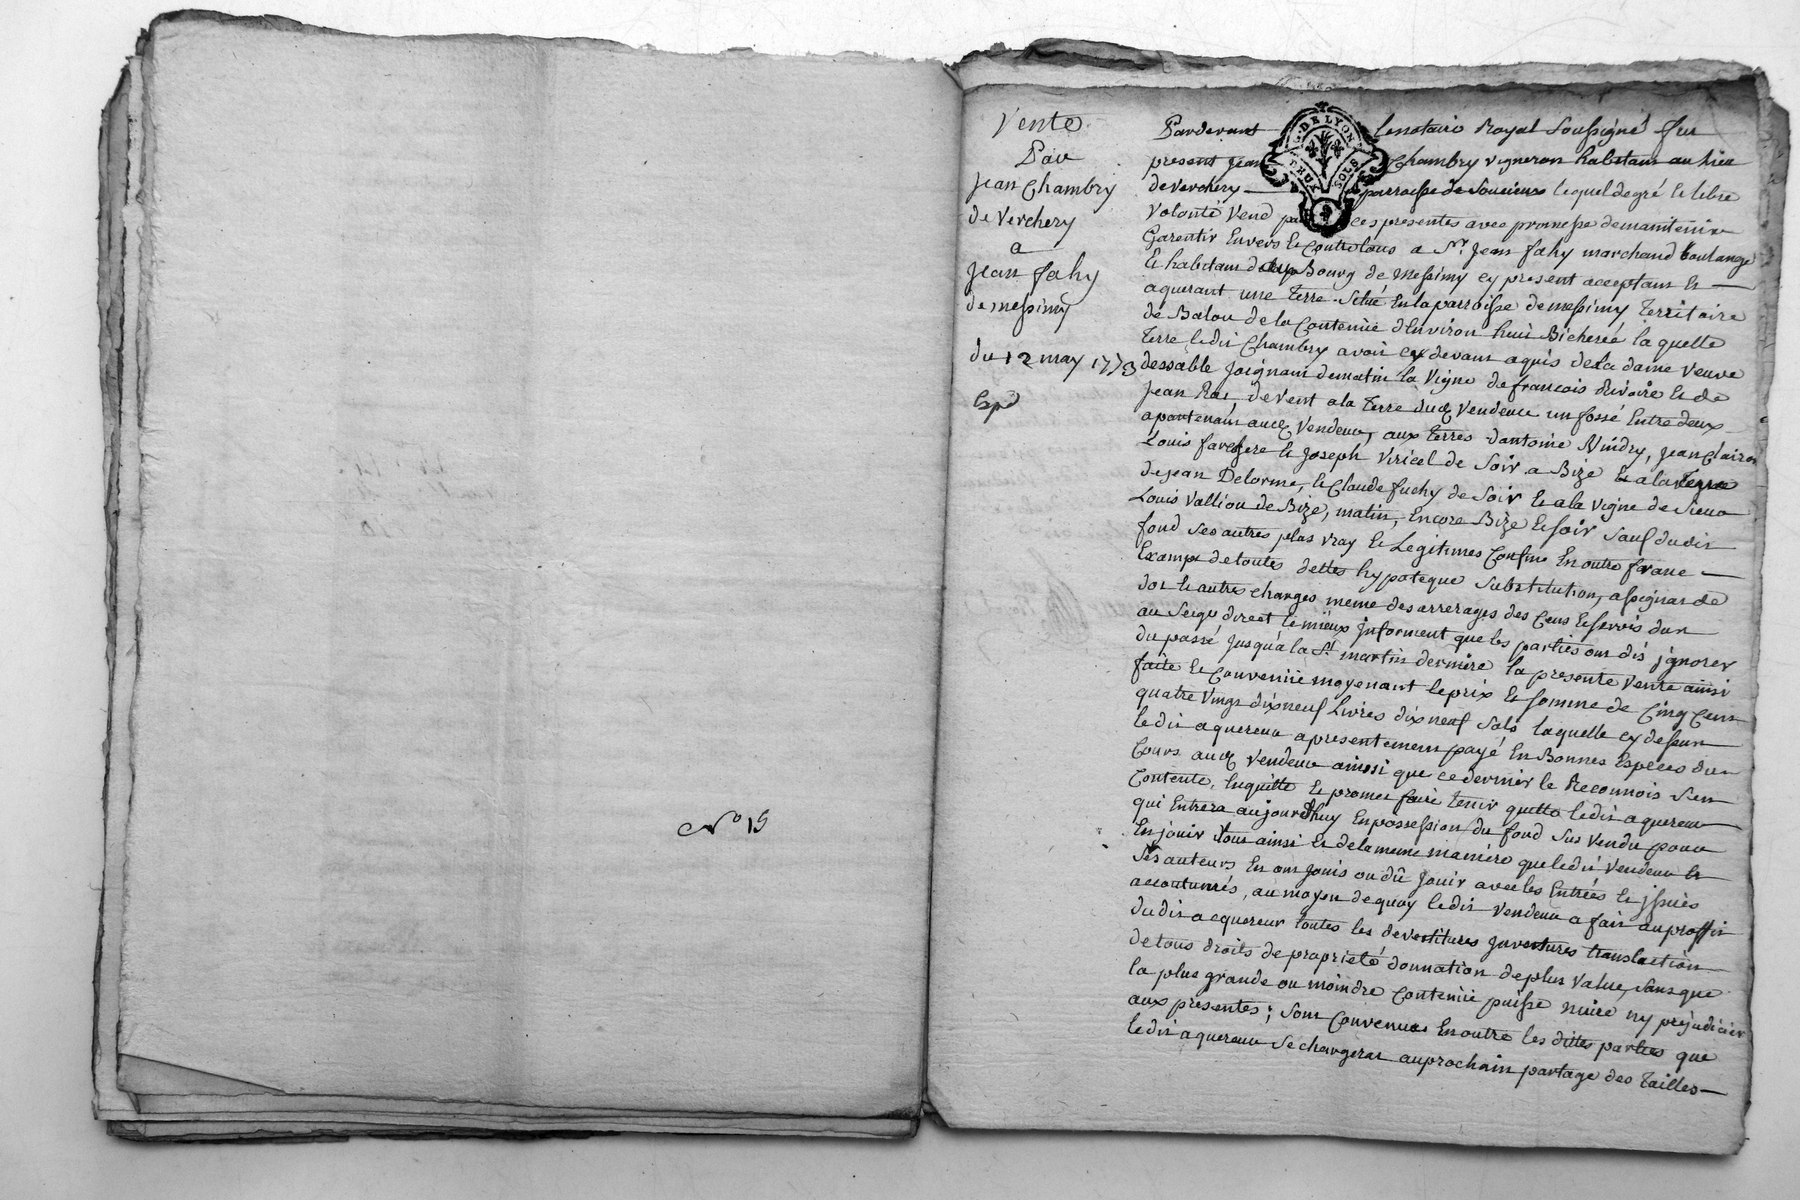 No 19
Vente
Par
Jean Chambry
de Verchery
a
Jean fahy
de messimy
du 12 may 1773
Expd
G. DE LYON
DEUX SOLS
Pardevant le notaire Royal Soussigné fut
present Jean Chambry vigneron habitant au lieu
de Verchery parroisse de Soucieux lequel de gré et libre
volonté vend par ces presentes avec promesse de maintenir
Garentir Envers et Contre tous a Sr. Jean fahy marchand boulanger
et habitant du Bourg de Messimy cy present acceptant et
aquerant une terre Situé En la parroisse de messimy territoire
de Balou de la Contenüe d'Environ huit Bicherée laquelle
terre ledit Chambry avoit cy devant aquis de la dame veuve
dessable Joignant de matin la Vigne de francois Rivoire et de
Jean Rat, de Vent a la terre dud. Vendeur un fossé Entre deux
apartenant aud. Vendeur, aux terres d'antoine Nindry, Jean Clairon
Louis favergere et Joseph Viricel de Soir a Bize et a la terre
de Jean Delorme, et Claude fuchy de Soir et a la vigne de Sieur
Louis Valliou de Bize, matin, Encore Bize et soir Sauf dudit
fond Ses autres plus vray et Legitimes Confins En outre franc
Exampt de toutes dettes hypoteque Substitution, assignat de
dot et autres charges meme des arrerages des Cens et servis dun
au Seigr direct le mieux Informent que les parties ont dit ignorer
du passé Jusqu'a la St martin derniere la presente Vente ainsi
faite et Convenüe moyenant le prix et somme de Cinq Cent
quatre Vingt dix neuf Livres dix neuf sols laquelle cy dessus
ledit aquereur a presentement payé En Bonnes Especes du
Cours aud. Vendeur ainssi que ce dernier le Reconnois S'en
Contente, Enquitte et promet faire tenir quitte ledit aquereur
qui Entrera aujourdhuy En possession du fond Sus Vendu pour
En jouir tout ainsi et de la meme maniere que ledit Vendeur et
Ses auteurs En ont jouis ou dû Jouir avec les Entrées et issües
accoutumés, au moyen de quoy ledit Vendeur a fait au proffit
dudit acquereur toutes les devestitures Investures translaction
de tous droits de proprieté donnation de plus Value, Sans que
la plus grande ou moindre Contenüe puisse nuire ny prejudicier
aux presentes; Sont Convenues En outre les dittes parties que
ledit aquereur Se chargerat au prochain partage des tailles